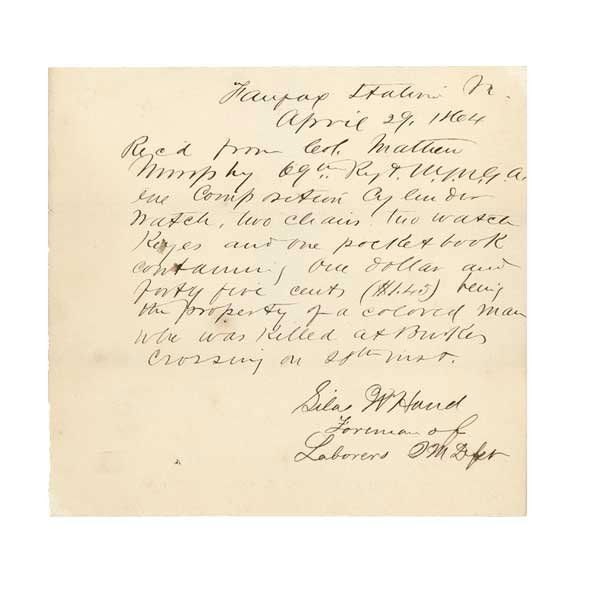 Fairfax Station Va.
April 29, 1864
Rec'd from Col. Mathew
Murphy 69th Regt. N.Y.N.G.A.
one Composition Cylinder
Watch, two chains two watch
Keyes and one pocket book
containing One dollar and
forty five cents ($1.45) being
the property of a colored man
who was killed at Burkes
Crossing on 28th inst.
Silas W Hand
Foreman of
Laborers Q M Dept